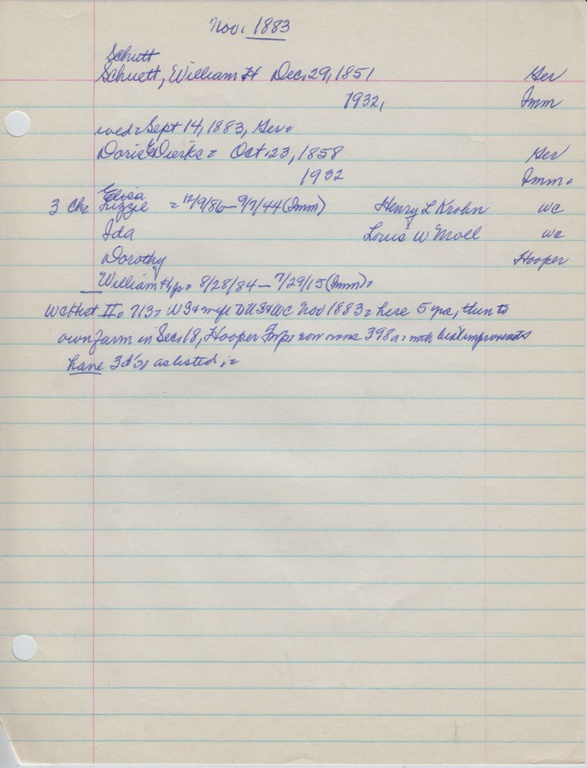 Nov. 1883
Schutt
Schuett, William H Dec. 29, 1851 Ger
1932, Imm
wed = Sept 14, 1883, Ger =
Doris Dierks = Oct. 23, 1858 Ger
1932 Imm =
Elisa
3 Ch = Lizzie = 12/9/86 - 9/7/44 (Imm) Henry L Krohn WC
Ida Louis W Moll WC
Dorothy Hooper
William H, Jr = 8/28/84 - 7/29/15 (Imm) =
WC Hist II = 713 = WS & wife to US & WC Nov 1883 = here 5 yrs, then to
own farm in Sec. 18, Hooper Twp = now owns 398 a = with best improvements
have 3 d's, as listed, =